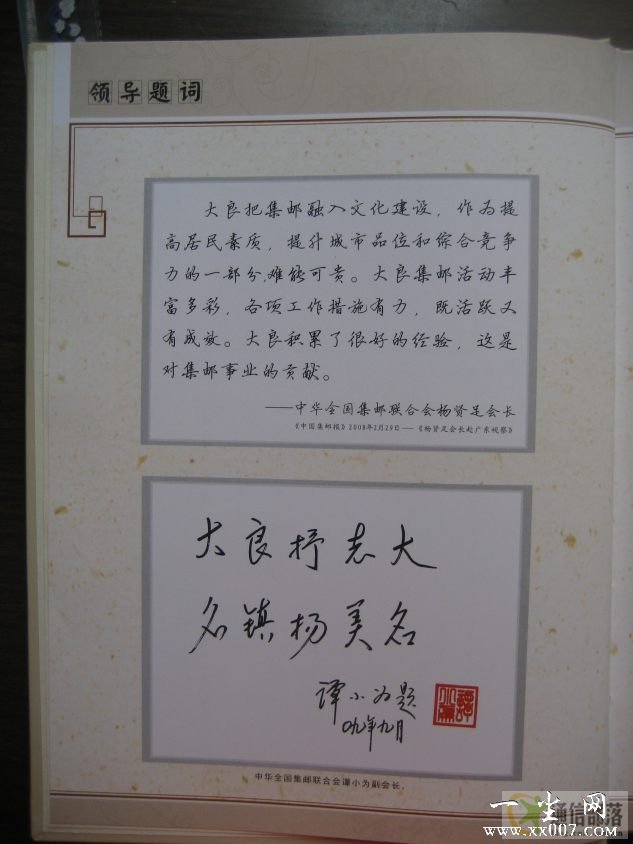 领导题词
大良把集邮融入文化建设，作为提
高居民素质，提升城市品位和综合竞争
力的一部分，难能可贵。大良集邮活动丰
富多彩，各项工作措施有力，既活跃又
有成效。大良积累了很好的经验，这是
对集邮事业的贡献。
——中华全国集邮联合会杨贤足会长
《中国集邮报》2008年2月29日——《杨贤足会长赴广东视察》
大良抒志大
名镇扬美名
谭小为题
〇九年九月
中华全国集邮联合会谭小为副会长。
一生网
通信部落
www.xx007.com